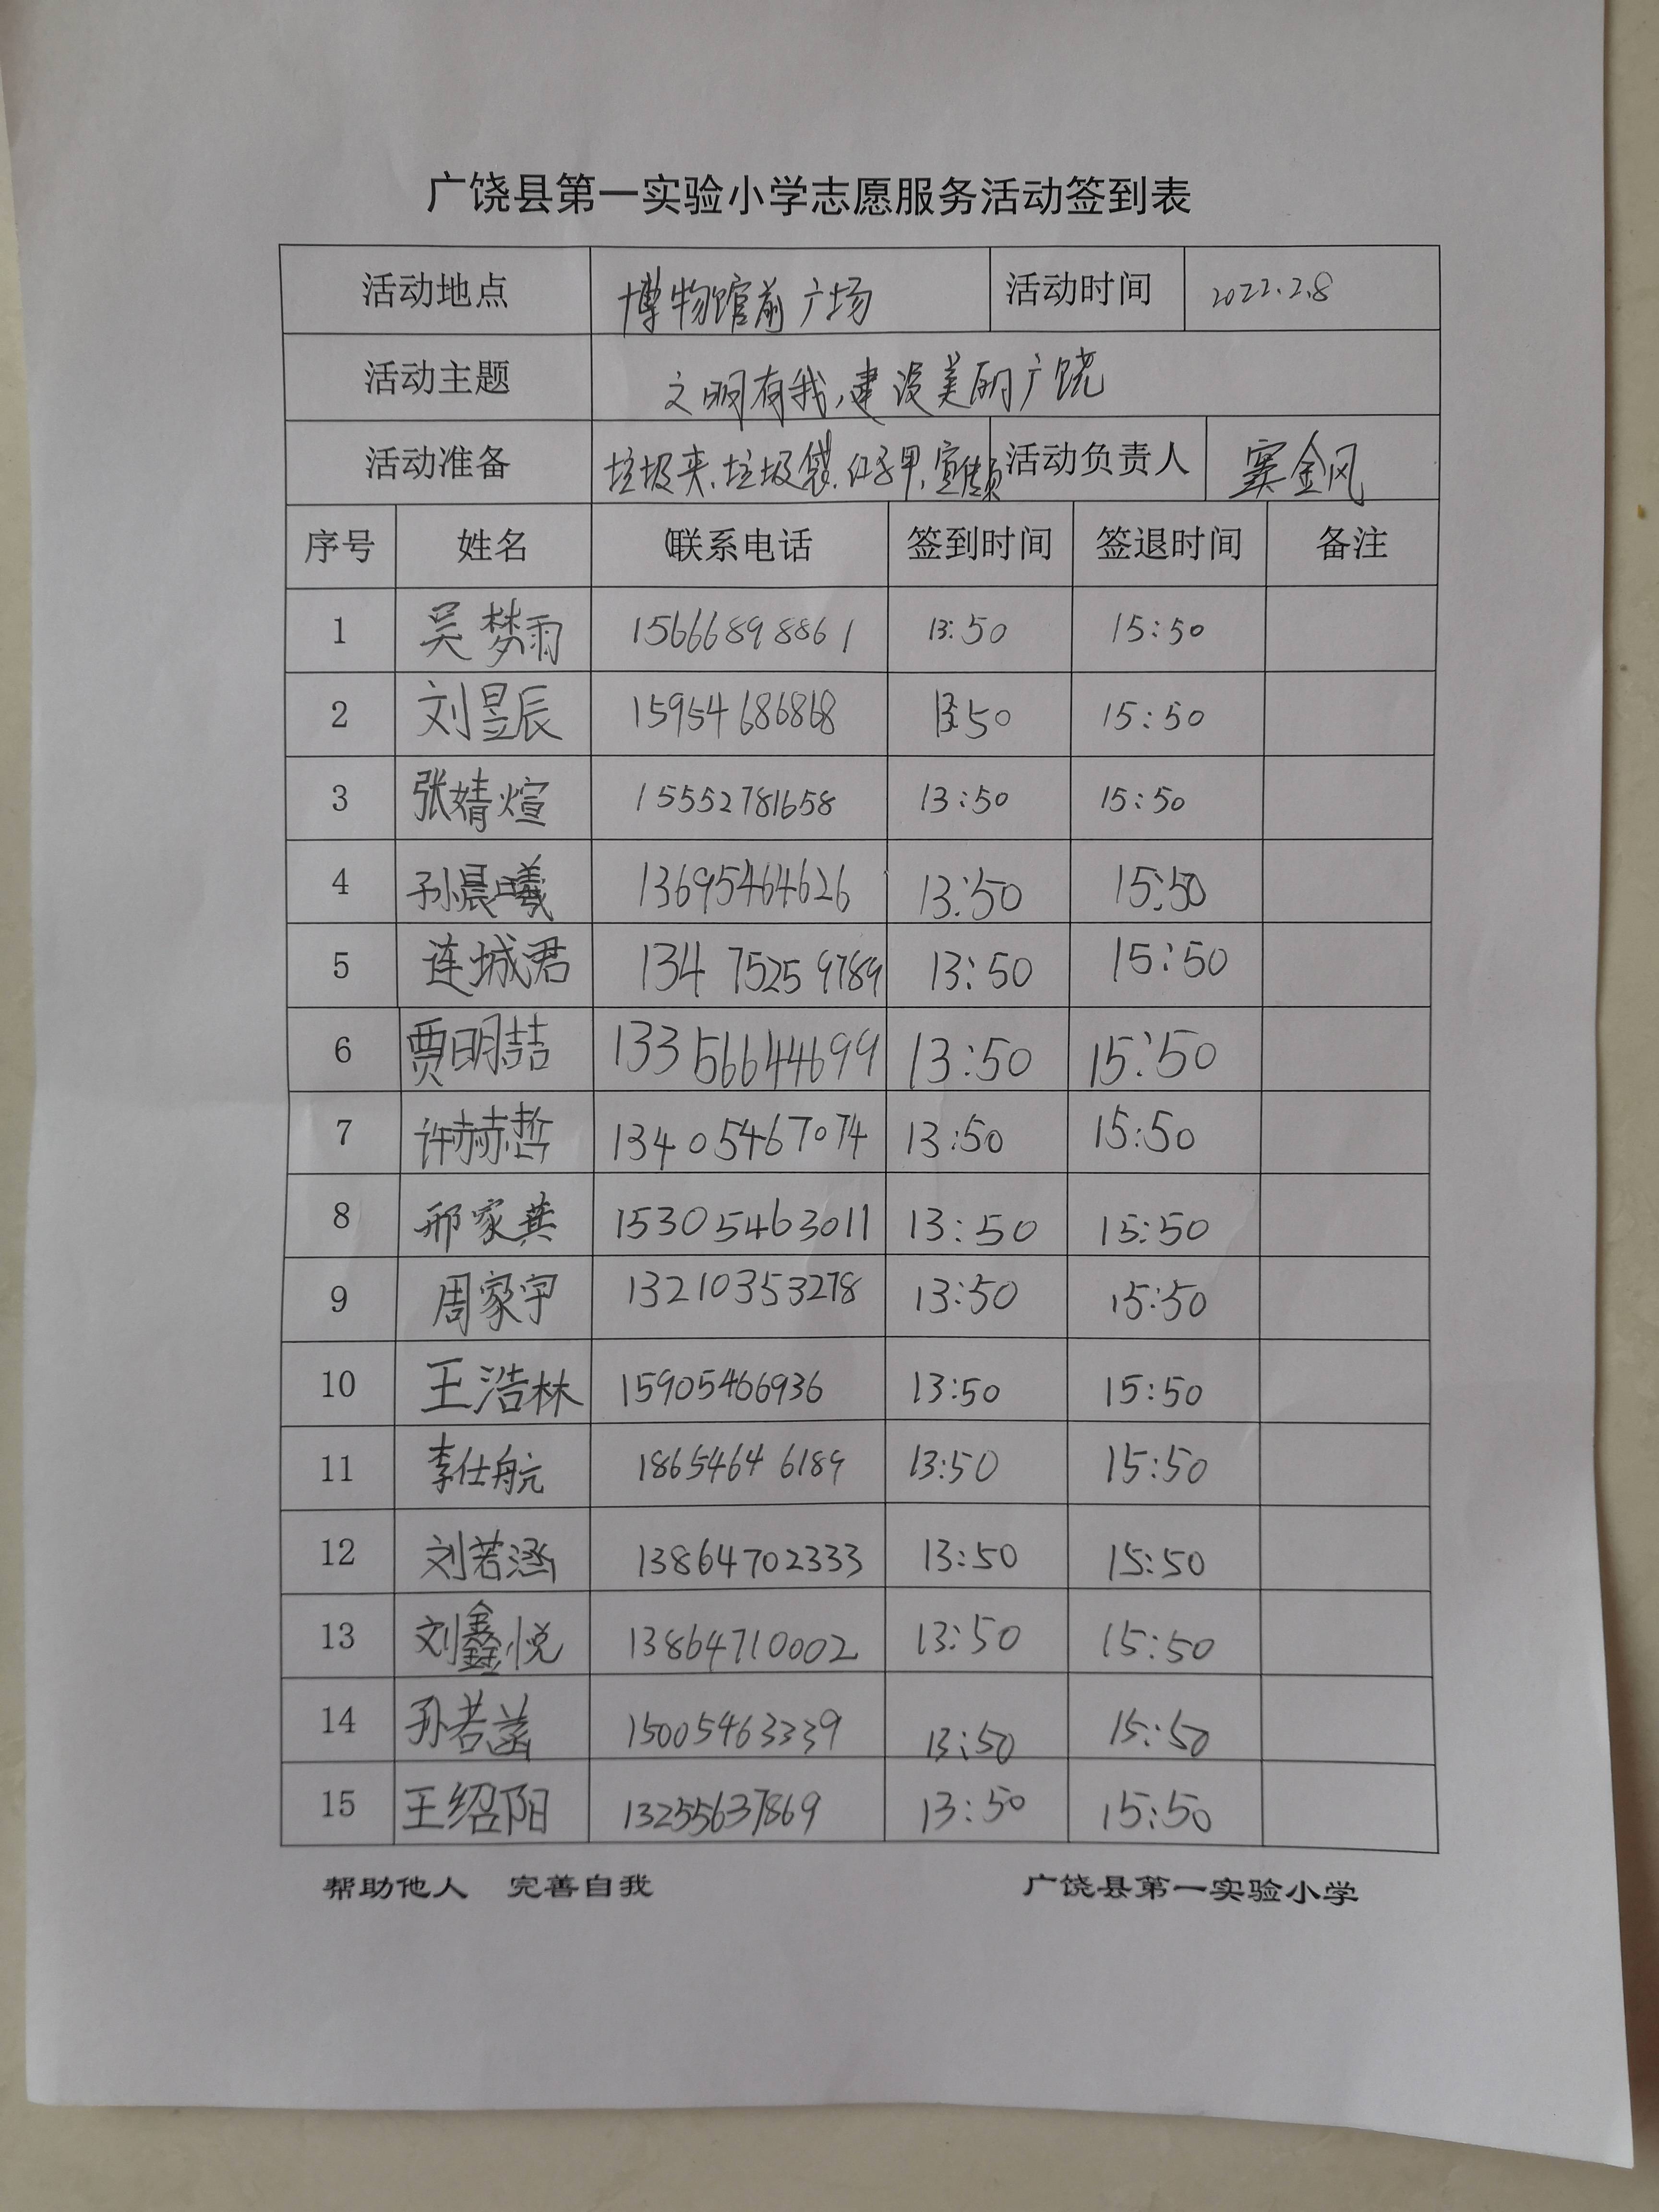 广饶县第一实验小学志愿服务活动签到表
活动地点 博物馆前广场 活动时间 2022.2.8
活动主题 文明有我,建设美丽广饶
活动准备 垃圾夹、垃圾袋、红马甲、宣传页 活动负责人 窦金凤
序号 姓名 联系电话 签到时间 签退时间 备注
1 吴梦雨 15666898861 13:50 15:50
2 刘昱辰 15954686868 13:50 15:50
3 张婧煊 15552781658 13:50 15:50
4 孙晨曦 13695464626 13:50 15:50
5 连城君 134 7525 9789 13:50 15:50
6 贾明喆 13356644699 13:50 15:50
7 许赫哲 13405467074 13:50 15:50
8 邢家 15305463011 13:50 15:50
9 周家宇 13210353278 13:50 15:50
10 王浩林 15905466936 13:50 15:50
11 李仕航 1865464 6189 13:50 15:50
12 刘若涵 13864702333 13:50 15:50
13 刘鑫悦 13864710002 13:50 15:50
14 孙若菡 15005463339 13:50 15:50
15 王绍阳 13255637869 13:50 15:50
帮助他人 完善自我 广饶县第一实验小学